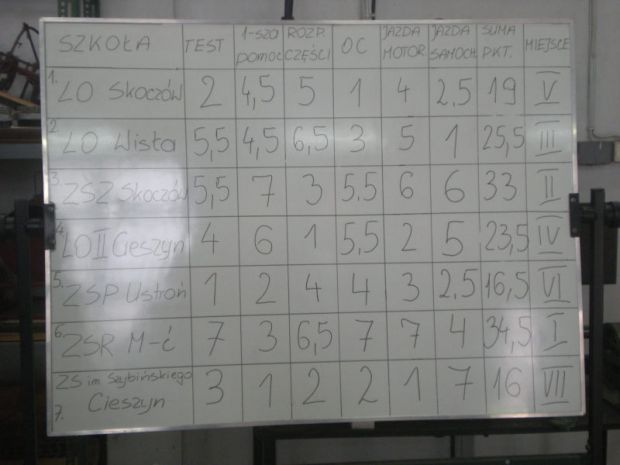 SZKOŁA TEST 1-sza pomoc ROZP. CZĘŚCI OC JAZDA MOTOR JAZDA SAMOCH SUMA PKT. MIEJSCE
1. LO Skoczów 2 4,5 5 1 4 2,5 19 V
2. LO Wisła 5,5 4,5 6,5 3 5 1 25,5 III
3. ZSZ Skoczów 5,5 7 3 5.5 6 6 33 II
4. LO II Cieszyn 4 6 1 5,5 2 5 23,5 IV
5. ZSP Ustroń 1 2 4 4 3 2,5 16,5 VI
6. ZSR M-ć 7 3 6,5 7 7 4 34,5 I
7. ZS im Szybińskiego Cieszyn 3 1 2 2 1 7 16 VII